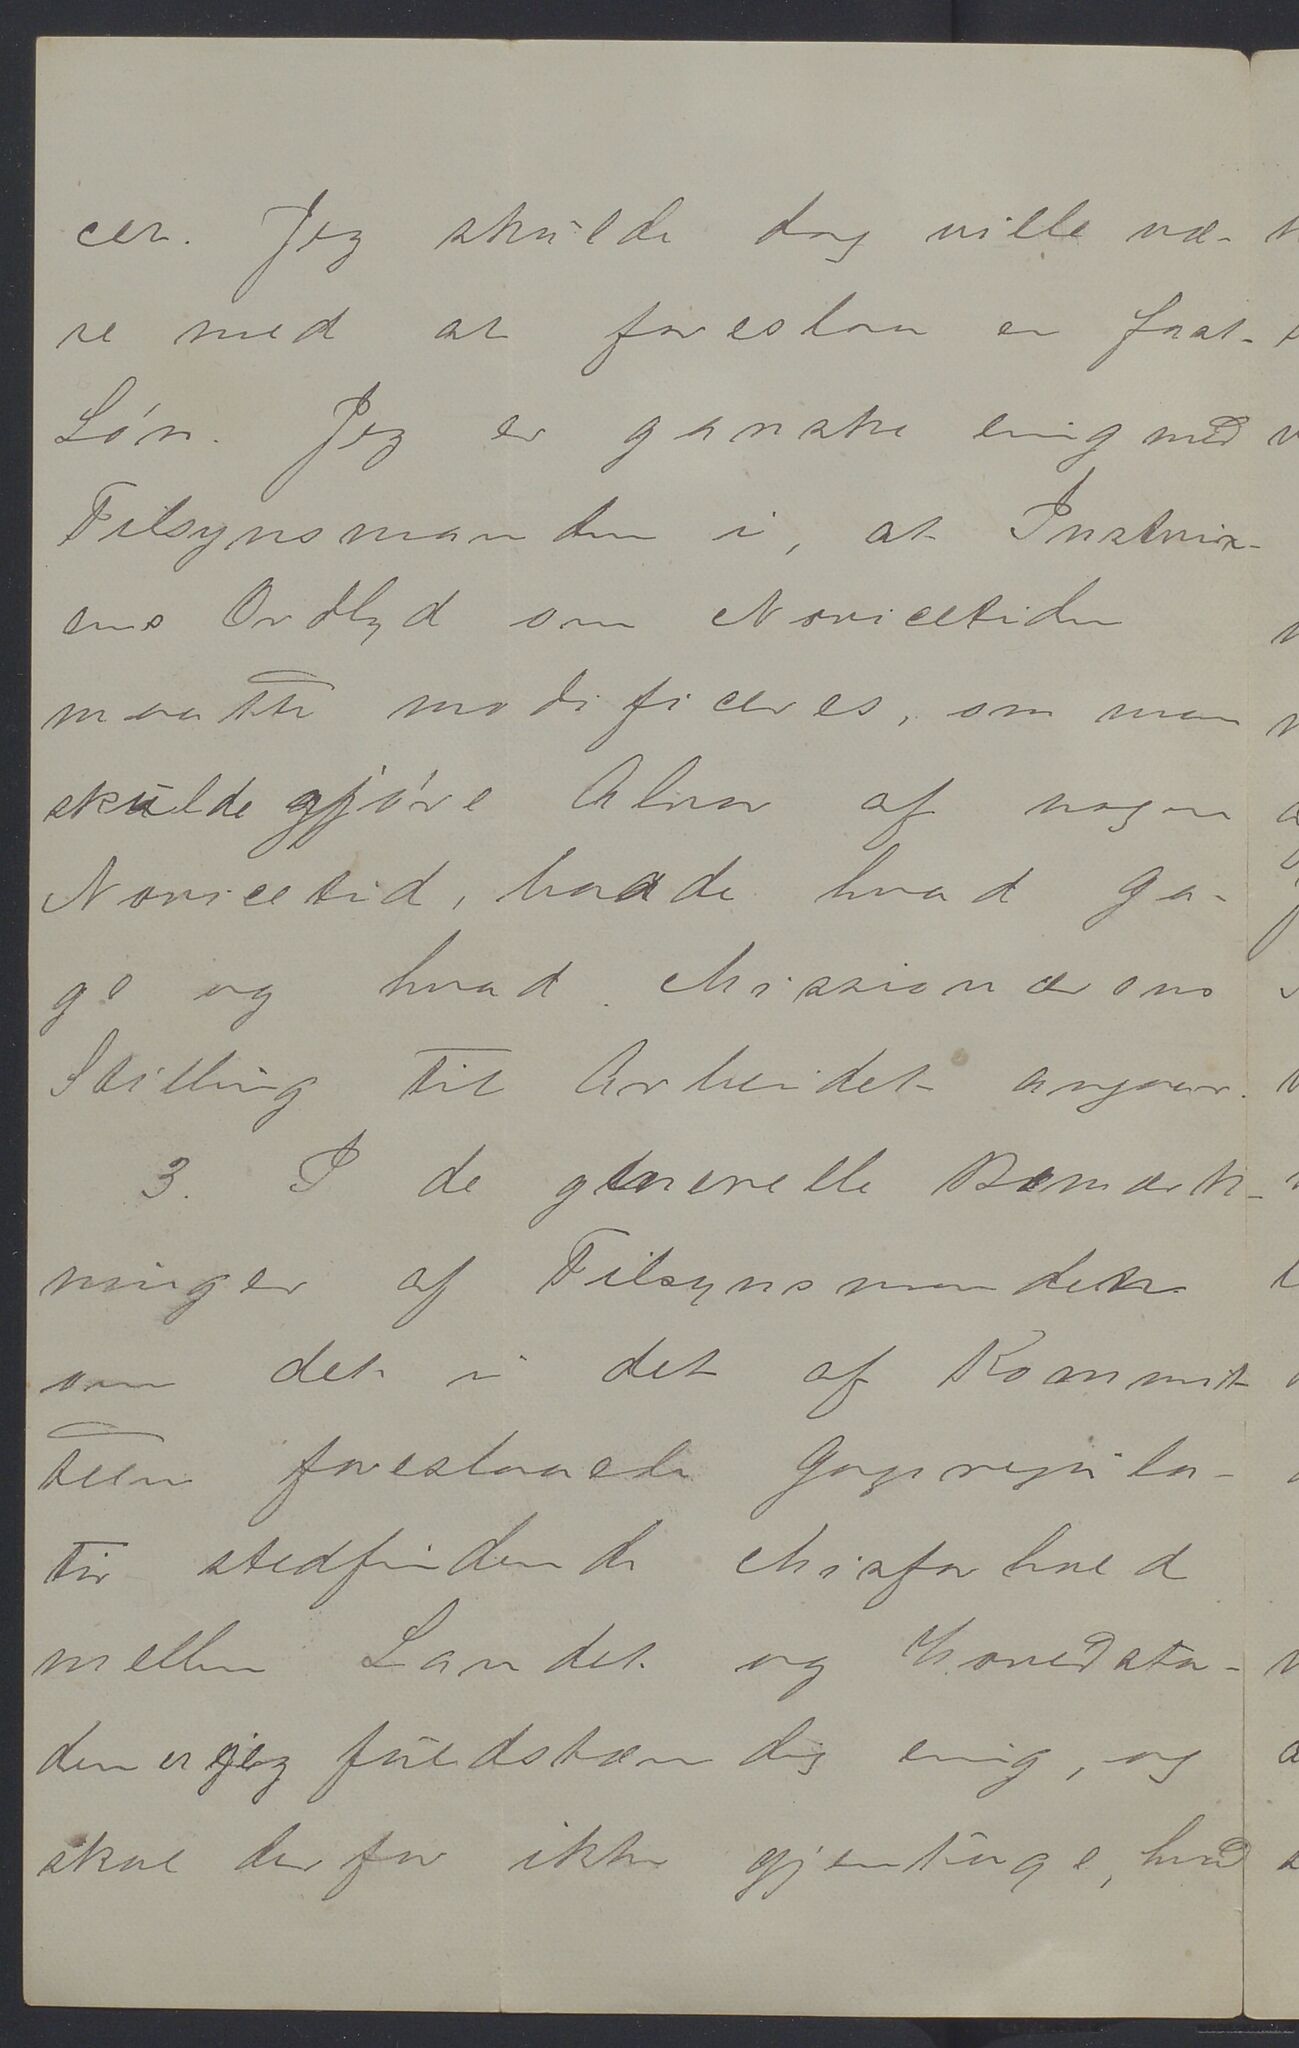 cer. Jeg skulde dog ville væ-
re med at foreslaa en fast
Løn. Jeg er ganske enig med
Tilsynsmanden i, at Instrux-
ens Ordlyd om Novicetiden
maatte modificeres, om man
skulde gjøre Alvor af nogen
Novicetid, baade hvad Ga-
ge og hvad Missionærens
Stilling til Arbeidet angaar.
3. I de generelle Bemærk-
ninger af Tilsynsmanden
om det i det af Kommit-
teen foreslaaede Gageregula-
tiv stedfindende Misforhold
mellem Landet og Hovedsta-
den er jeg fuldstændig enig, og
skal derfor ikke gjentage, hvad